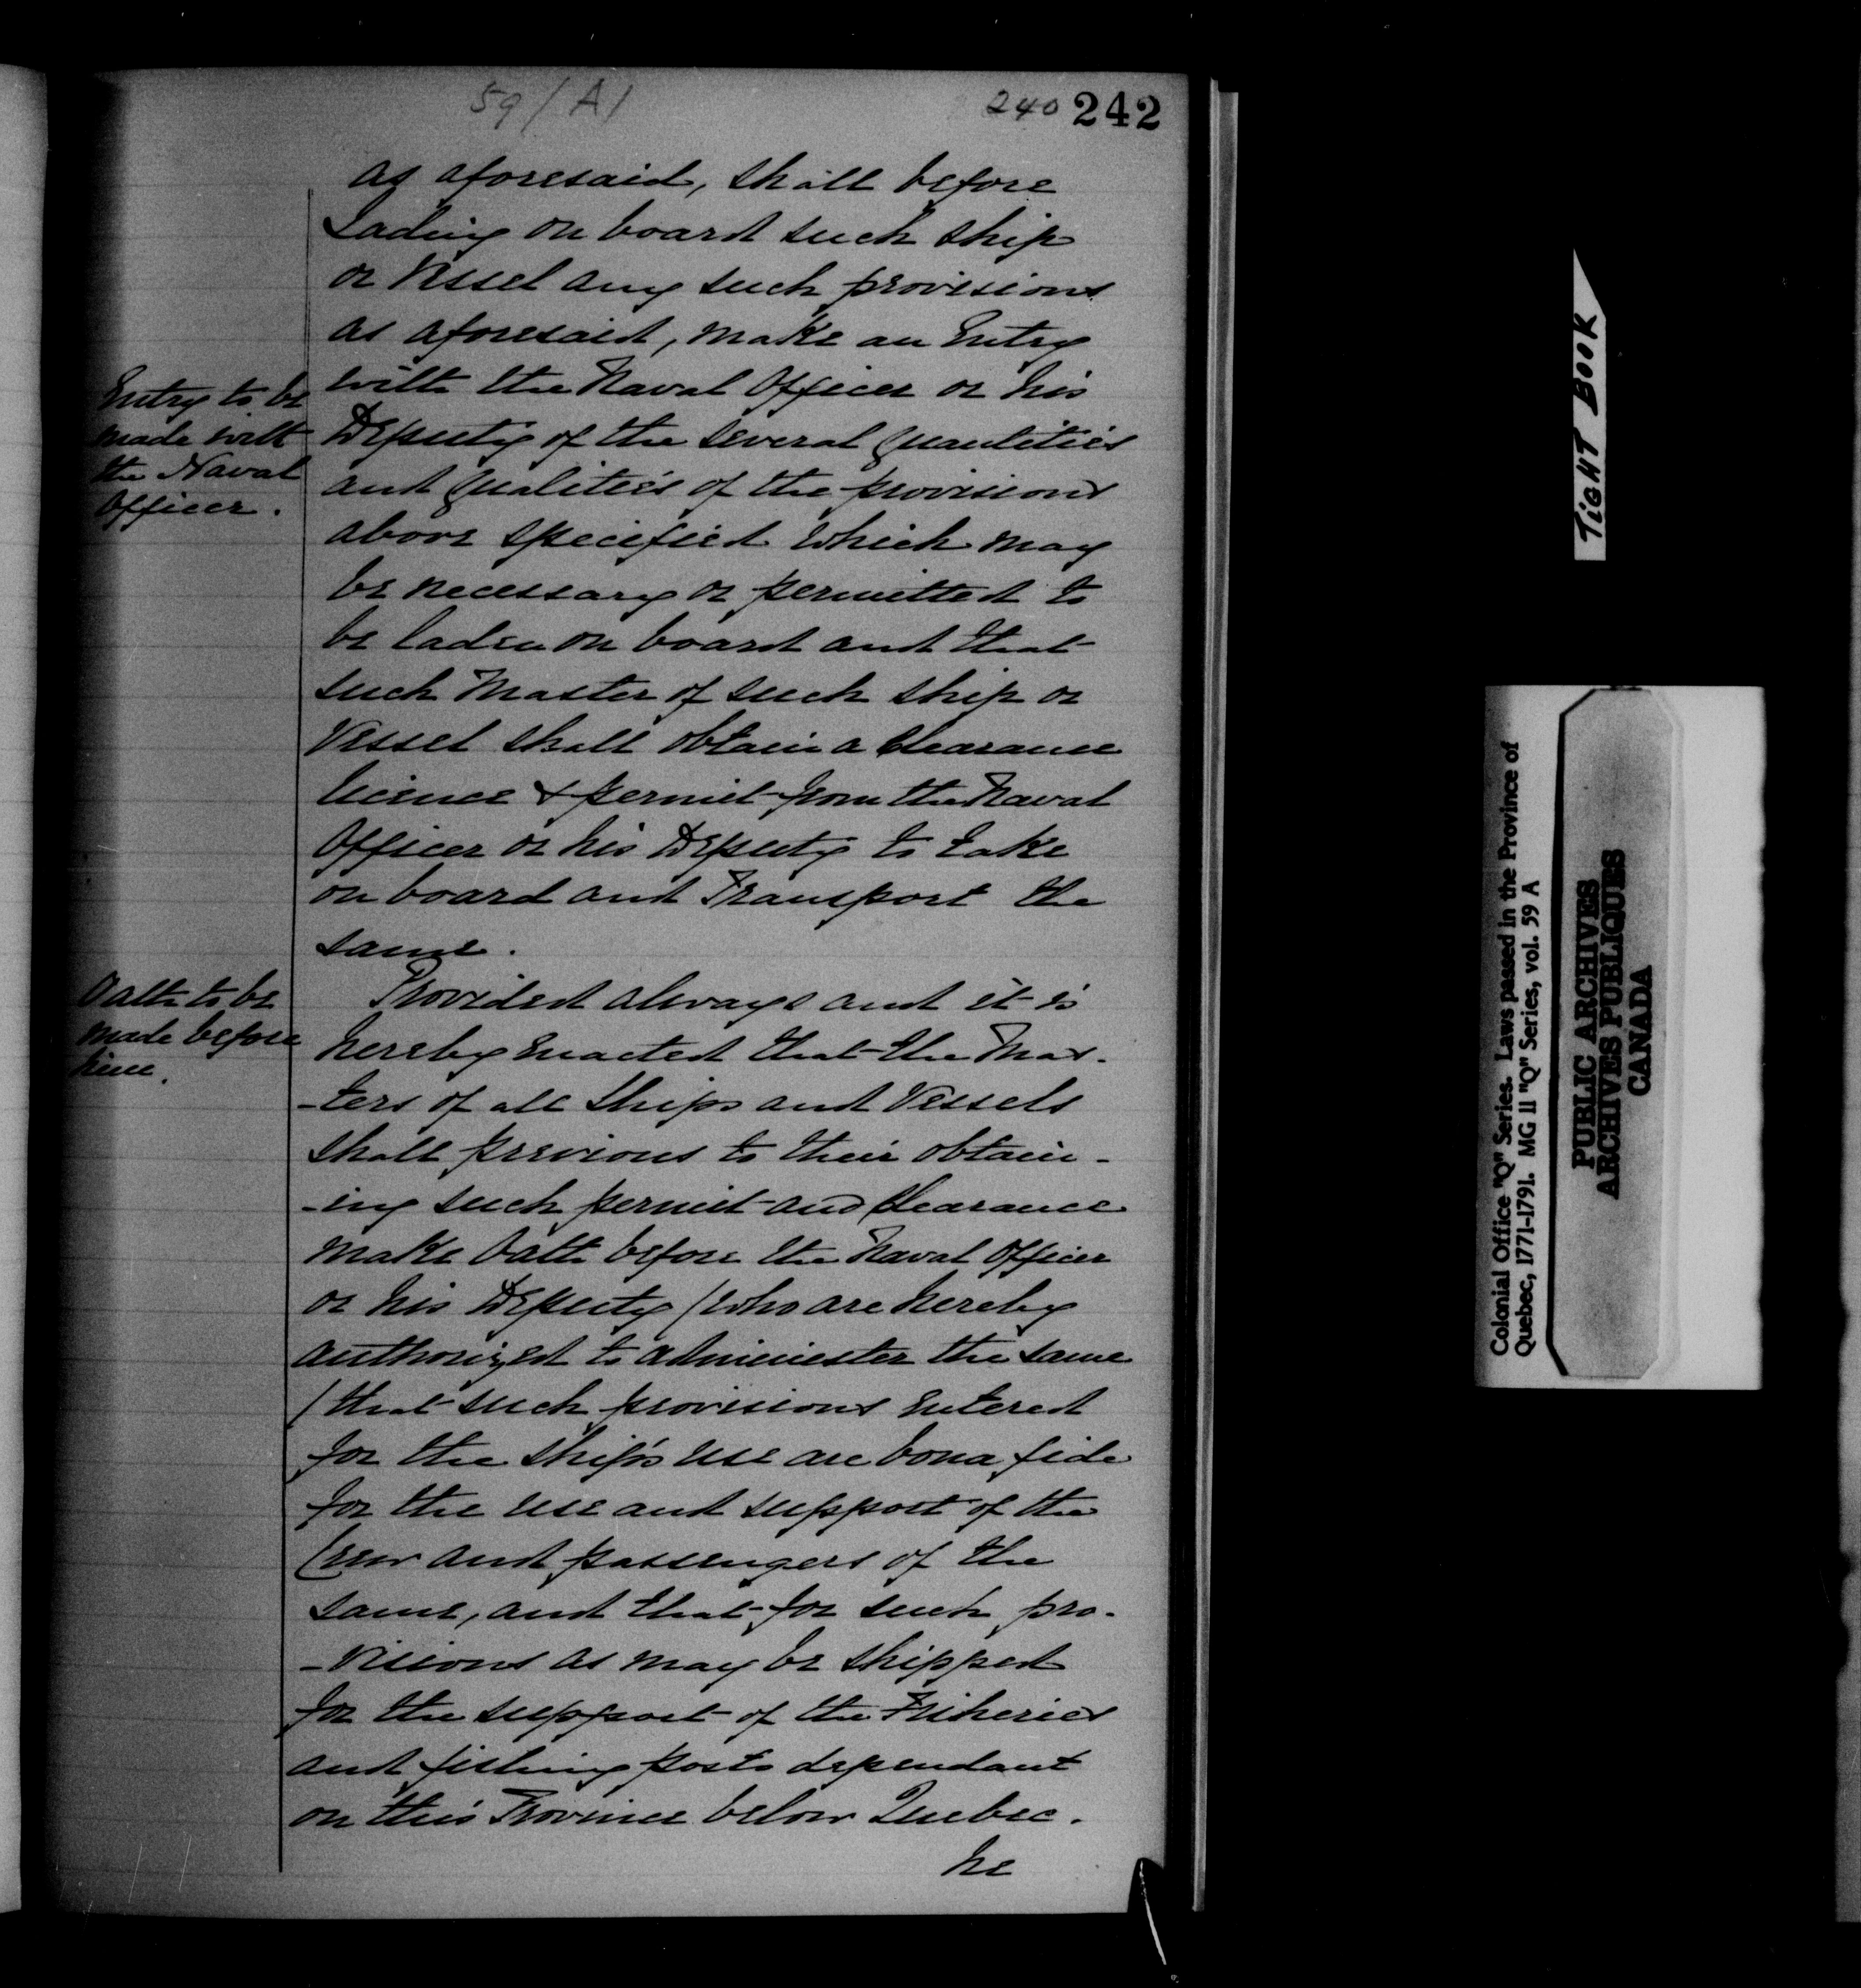 59/A1
240 242
as aforesaid, shall before
Lading on board such ship
or Vessel any such provisions
as aforesaid, make an Entry
with the Naval Officer or his
Deputy of the several quantities
and qualities of the provisions
above specified which may
be necessary or permitted to
be laden on board and that
such Master of such ship or
Vessel shall obtain a Clearance
licence & permit from the Naval
Officer or his Deputy to take
on board and Transport the
same.
Provided always and it is
hereby Enacted that the Mas-
-ters of all Ships and Vessels
shall previous to their obtain-
-ing such permit and Clearance
make Oath before the Naval Officer
or his Deputy (who are hereby
authorized to administer the same
(that such provisions entered
for the ship's use are bona fide
for the use and support of the
Crew and passengers of the
same, and that for such pro-
-visions as may be shipped
for the support of the Fisheries
and fishing posts dependant
on this Province below Quebec.
he
Entry to be
made with
the Naval
Officer.
Oath to be
made before
him.
TIGHT BOOK
Colonial Office "Q" Series. Laws passed in the Province of
Quebec, 1771-1791. MG 11 "Q" Series, vol. 59 A
PUBLIC ARCHIVES
ARCHIVES PUBLIQUES
CANADA